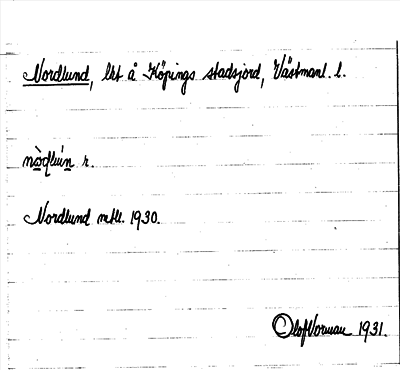 Nordlund, lht å Köpings stadsjord, Västmanl. l.
r.
Nordlund mtl. 1930.
Olof Vorman 1931.